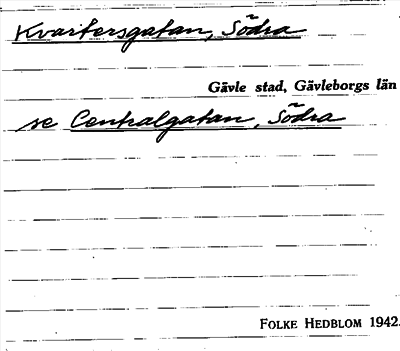 Kvartersgatan, Södra
Gävle stad, Gävleborgs län
se Centralgatan, Södra
FOLKE HEDBLOM 1942.